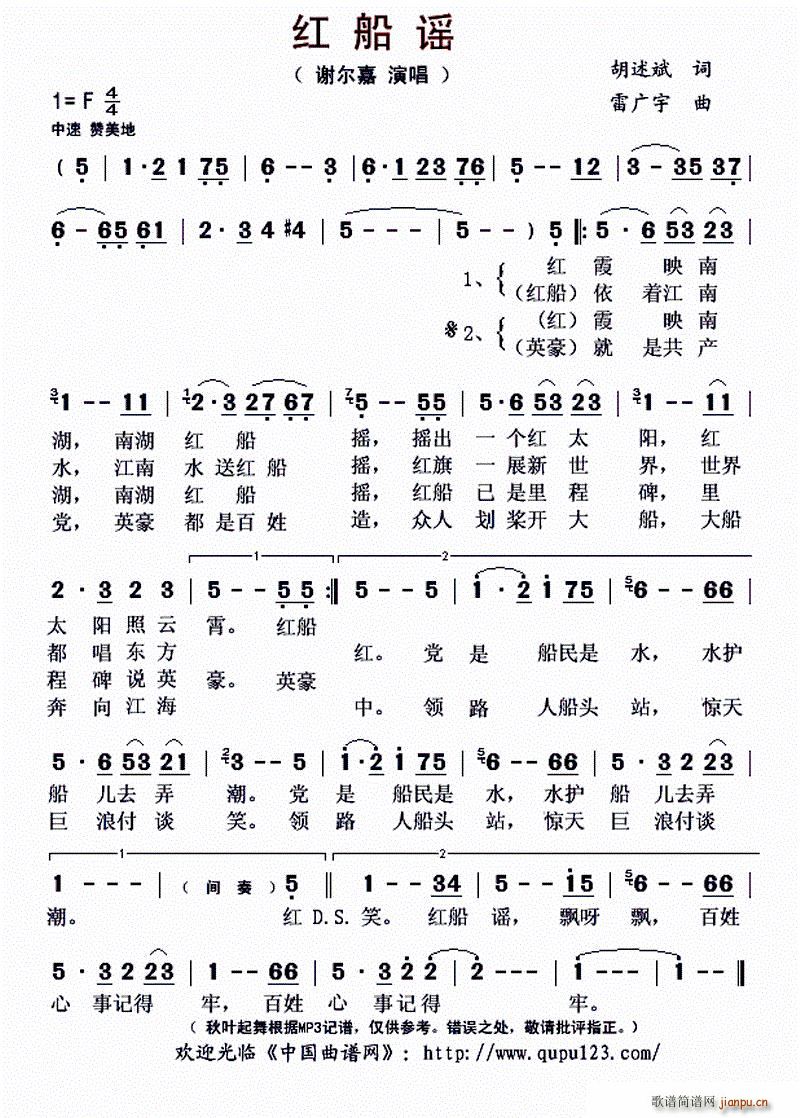 红 船 谣
( 谢尔嘉 演唱 )
胡述斌 词
雷广宇 曲
1= F 4/4
中速 赞美地
( 5 | 1 · 2 1 75 | 6 - - 3 | 6 · 1 23 76 | 5 - - 12 | 3 - 35 37 |
6 - 65 61 | 2 · 3 4 #4 | 5 - - - | 5 - - ) 5 ‖: 5 · 6 53 23 |
1、 红 霞 映 南
(红船) 依 着 江 南
2、 (红) 霞 映 南
(英豪) 就 是 共 产
3 1 - - 11 | 1 2 · 3 27 67 | 7 5 - - 55 | 5 · 6 53 23 | 3 1 - - 11 |
湖, 南湖 红 船 摇, 摇出 一 个红 太 阳, 红
水, 江南 水 送红 船 摇, 红旗 一 展新 世 界, 世界
湖, 南湖 红 船 摇, 红船 已 是里 程 碑, 里
党, 英豪 都 是百 姓 造, 众人 划 桨开 大 船, 大船
1 2
2 · 3 2 3 | 5 - - 5 5 :‖ 5 - - 5 | 1 · 2 1 75 | 5 6 - - 66 |
太 阳 照 云 霄。 红船
都 唱 东 方 红。 党 是 船民是 水, 水护
程 碑 说 英 豪。 英豪
奔 向 江 海 中。 领 路 人船头 站, 惊天
5 · 6 53 21 | 2 3 - - 5 | 1 · 2 1 75 | 5 6 - - 66 | 5 · 3 2 23 |
船 儿去 弄 潮。 党 是 船民是 水, 水护 船 儿去弄
巨 浪付 谈 笑。 领 路 人船头 站, 惊天 巨 浪付谈
1 2
1 - - - | ( 间 奏 ) 5 ‖ 1 - - 34 | 5 - - 15 | 5 6 - - 66 |
潮。 红 D.S. 笑。 红船 谣, 飘呀 飘, 百姓
5 · 3 2 23 | 1 - - 66 | 5 · 3 2 2 | 2 - - - | 1 - - - | 1 - - ‖
心 事记得 牢, 百姓 心 事记得 牢。
( 秋叶起舞根据MP3记谱, 仅供参考。错误之处, 敬请批评指正。)
欢迎光临《中国曲谱网》: http://www.qupu123.com/
歌谱简谱网 jianpu.cn